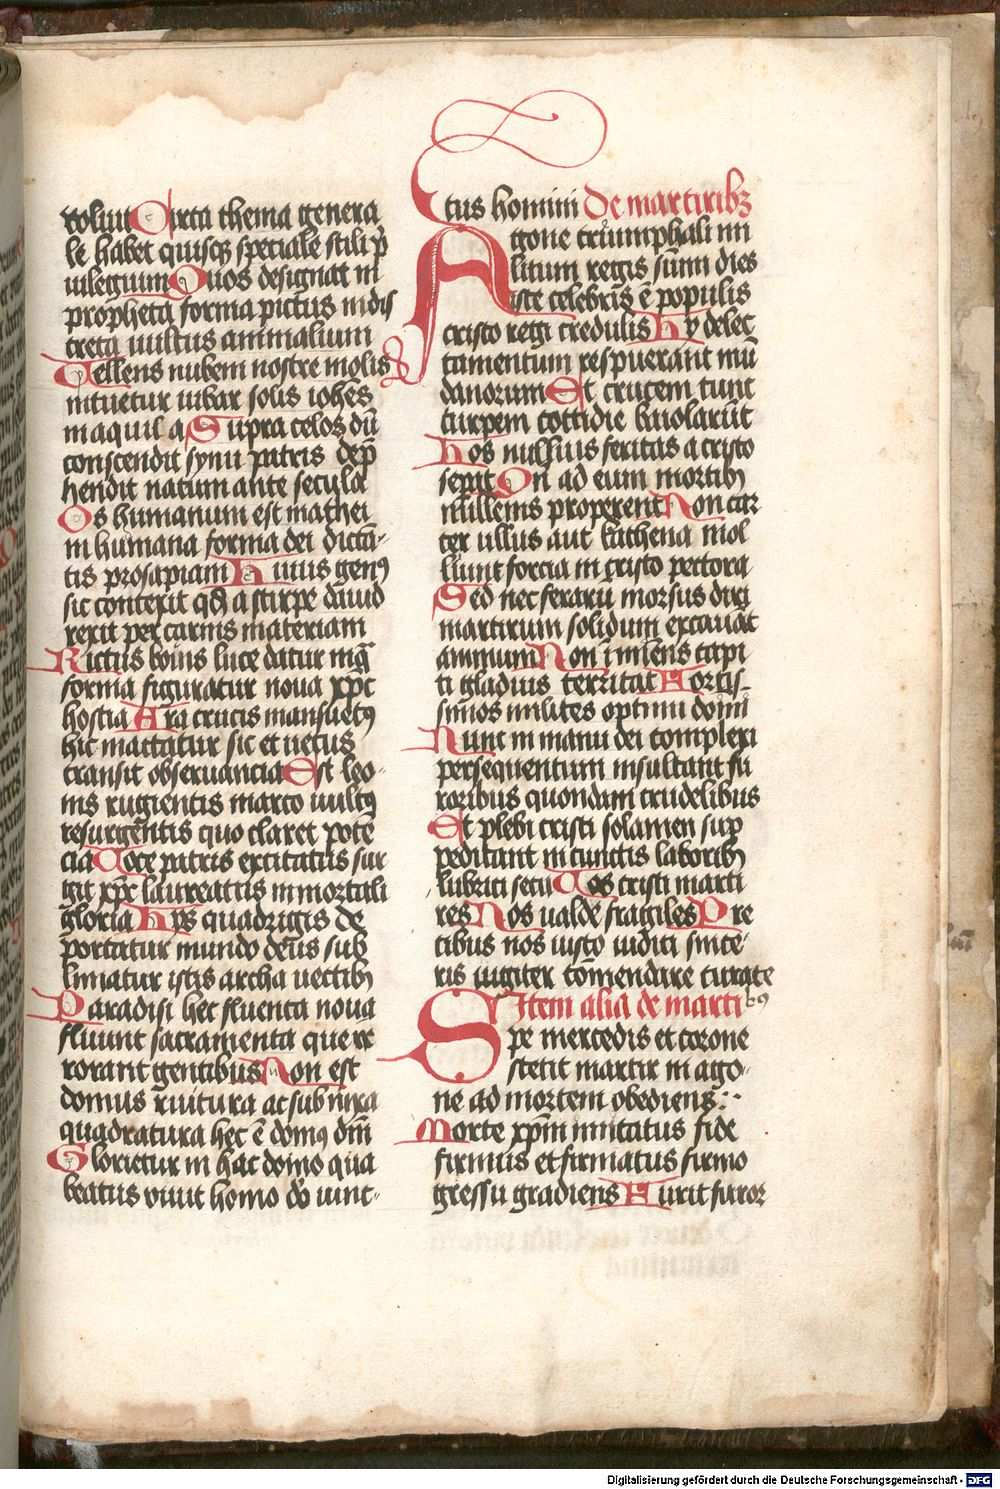 voluit Circa thema genera
le habet quisq3 speciale stili p̄
uilegium Quos designat in
propheta forma pictus indis
creta uultus animalium
Tellens nubem nostre molis
intuetur iubar solis ioh̄es
in aquila Supra celos dū
conscendit synu patris dep̄
hendit natum ante secula
Os humanum est mathei
in humana forma dei dictā-
tis prosapiam Huius genꝰ
sic contexit qd̄ a stirpe dauid
rexit per carnis materiam
Rictus bouis luce datur in q̄
forma figuratur noua xp̄c
hostia Ara crucis mansuetꝰ
hic mactatur sic et uetus
transit obseruancia Est leo-
nis rugientis marco uultꝰ
resurgentis quo claret potē
cia Voce patris excitatus sur
git xp̄c laureatus inmortali
gloria Hys quadrigis de
portatur mundo deus sub
limatur istis archa uectibꝫ
Paradisi hec fluenta noua
fluunt sacramenta que rr
rorant gentibus Non est
domus ruitura ac subn̄ixa
quadratura hec ē domꝰ dn̄i
Glorietur in hac domo qua
beatus viuit homo do iunc-
ctus homini De martiribꝫ
Agone triumphali mi
litum regis sūmi dies
iste celebris ē populis
cristo regi credulis Hy delec
tamentum respuerant mū
danorum Et crucem tunt
turpem cottidie biuolarūt
Hos nullius feritas a cristo
seperit On ad eum mortibꝫ
millenis properent Non car
cer ullus aut kathena mol
liunt forcia in cristo pectora
Sed nec ferarū morsus diri
martirum solidum excauāt
animum Non īmīens capi
ti gladius territat Fortis-
simos milites optimi domī
Nunc in manu dei complexi
persequentum insultant fu
roribus quondam crudelibus
Et plebi cristi solamen sup
peditant in cunctis laboribꝫ
lubrici secu Vos cristi marti
res Nos ualde fragiles Pre
cibus nos iusto iudici since-
ris iugiter cōmendare curate
Item alia de martibꝰ
Spe mercedis et corone
stetit martir in ago-
ne ad mortem obediens :·
Morte xp̄m imitatus fide
firmus et firmatus firmo
gressu gradiens Furit furor
Digitalisierung gefördert durch die Deutsche Forschungsgemeinschaft - DFG